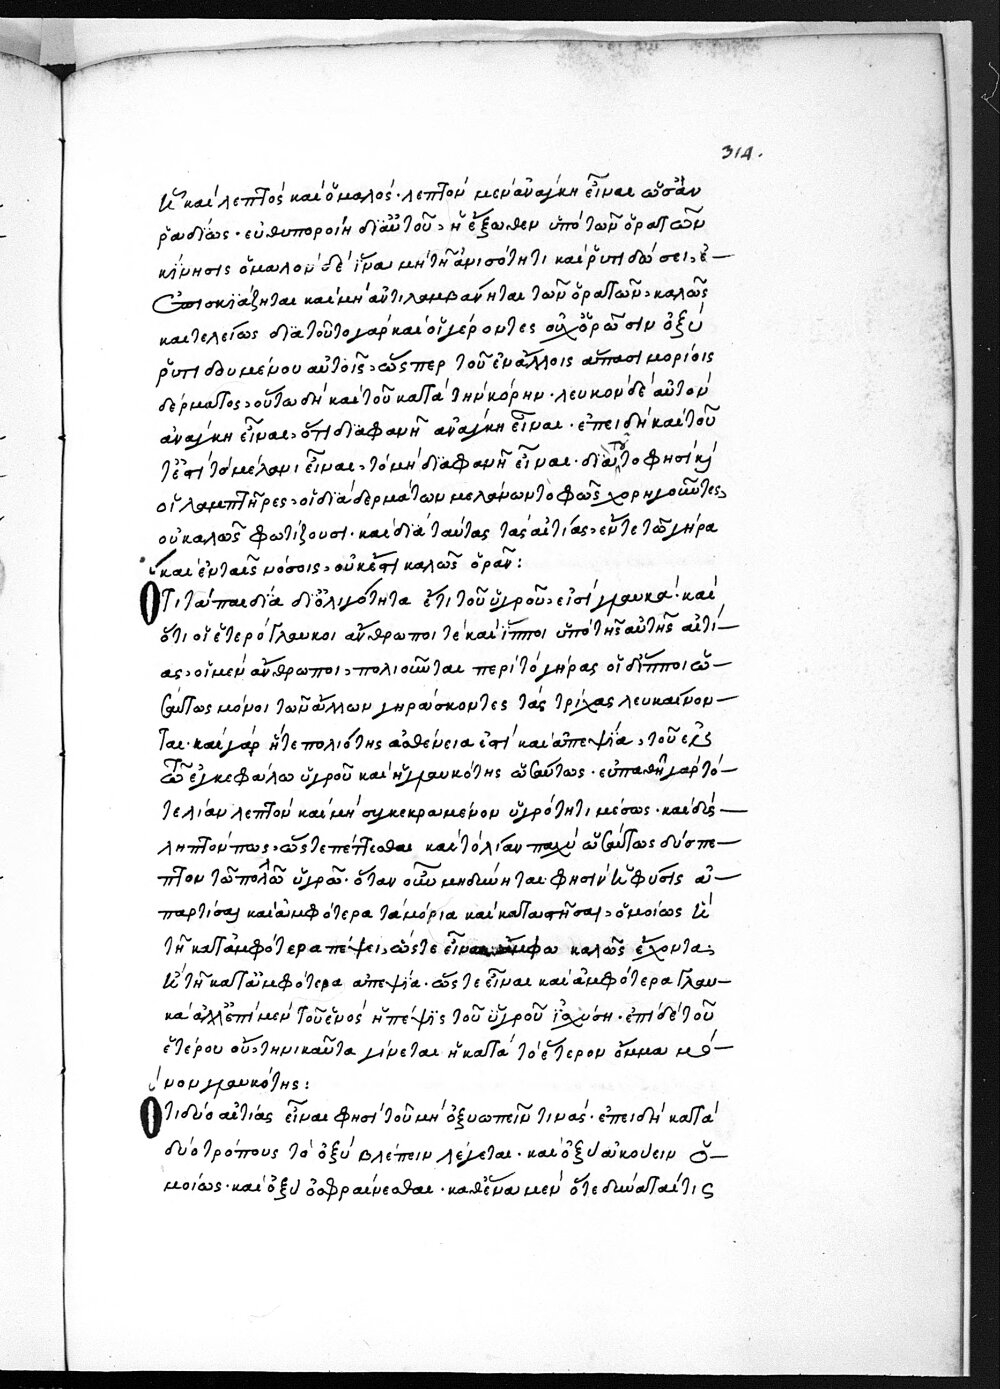 314.
ᾖ καὶ λεπτὸς καὶ ὁμαλός· λεπτὸν μὲν ἀνάγκη εἶναι ὡς ἂν
ῥαδίως· εὐθυποροίη δι' αὐτοῦ, ἡ ἔξωθεν ὑπὸ τῶν ὁρατῶν
κίνησις ὁμαλὸν δὲ ἵνα μὴ τῇ ἀνισότητι καὶ ῥυτιδώσει, ἐ-
πισκιάζηται καὶ μὴ ἀντιλαμβάνηται τῶν ὁρατῶν, καλῶς
καὶ τελείως διὰ τοῦτο γὰρ καὶ οἱ γέροντες οὐχ ὁρῶσιν ὀξὺ
ῥυτιδουμένου αὐτοῖς, ὥσπερ τοῦ ἐν ἄλλοις ἅπασι μορίοις
δέρματος, οὕτω δὴ καὶ τοῦ κατὰ τὴν κόρην· λευκὸν δὲ αὐτὸν
ἀνάγκη εἶναι, ὅτι διαφανῆ ἀνάγκη εἶναι· ἐπειδὴ καὶ τοῦ
τ' ἐστὶ τὸ μέλανι εἶναι, τὸ μὴ διαφανῆ εἶναι· διὰ τοῦτο φησὶ καὶ
οἱ λαμπτῆρες, οἱ διὰ δερμάτων μελάνων τὸ φῶς χορηγοῦντες,
οὐ καλῶς φωτίζουσι· καὶ διὰ ταύτας τὰς αἰτίας, ἔν τε τῷ γήρᾳ
καὶ ἐν ταῖς νόσοις, οὐκ ἔστι καλῶς ὁρᾶν:
Ὅτι τὰ παιδία δι' ὀλιγότητα ἔτι τοῦ ὑγροῦ, εἰσὶ γλαυκά· καὶ
ὅτι οἱ ἑτερόγλαυκοι ἄνθρωποί τε καὶ ἵπποι ὑπὸ τῆς αὐτῆς αἰτί-
ας, οἱ μὲν ἄνθρωποι, πολιοῦνται περὶ τὸ γῆρας οἱ δ' ἵπποι ὡ-
σαύτως μόνοι τῶν ἄλλων γηράσκοντες τὰς τρίχας λευκαίνον-
ται· καὶ γὰρ ἥ τε πολιότης ἀσθένεια ἐστὶ καὶ ἀπεψία, τοῦ ἐν
τῷ ἐγκεφάλῳ ὑγροῦ καὶ ἡ γλαυκότης ὡσαύτως· εὐπαθῆ γὰρ τό-
τε λίαν λεπτὸν καὶ μὴ συγκεκραμένον ὑγρότητι μέσως· καὶ δύς-
ληπτόν πως, ὥστε πέττεσθαι καὶ τὸ λίαν παχὺ ὡσαύτως δύσπε-
πτον τῷ πολλῷ ὑγρῷ· ὅταν οὖν μὴ δύνηται φησὶν ἡ φύσις ἀ-
παρτίσαι καὶ ἀμφότερα τὰ μόρια καὶ καταστῆσαι, ὁμοίως ἢ
τῇ κατ' ἀμφότερα πέψει, ὥστε εἶναι ἄμφω καλῶς ἔχοντα,
ἢ τῇ κατ' ἀμφότερα ἀπεψίᾳ· ὥστε εἶναι καὶ ἀμφότερα γλαυ-
κὰ ἀλλ' ἐπὶ μὲν τοῦ ἑνὸς ἡ πέψις τοῦ ὑγροῦ ἰσχύσῃ· ἐπὶ δὲ τοῦ
ἑτέρου οὒ, τηνικαῦτα γίνεται ἡ κατὰ τὸ ἕτερον ὄμμα μό-
νον γλαυκότης:
Ὅτι δύο αἰτίας εἶναι φησὶ τοῦ μὴ ὀξυωπεῖν τινάς· ἐπειδὴ κατὰ
δύο τρόπους τὸ ὀξὺ βλέπειν λέγεται· καὶ ὀξὺ ἀκούειν ὁ-
μοίως· καὶ ὀξὺ ὀσφραίνεσθαι· καθ' ἕνα μὲν ὅτε δύναταί τις